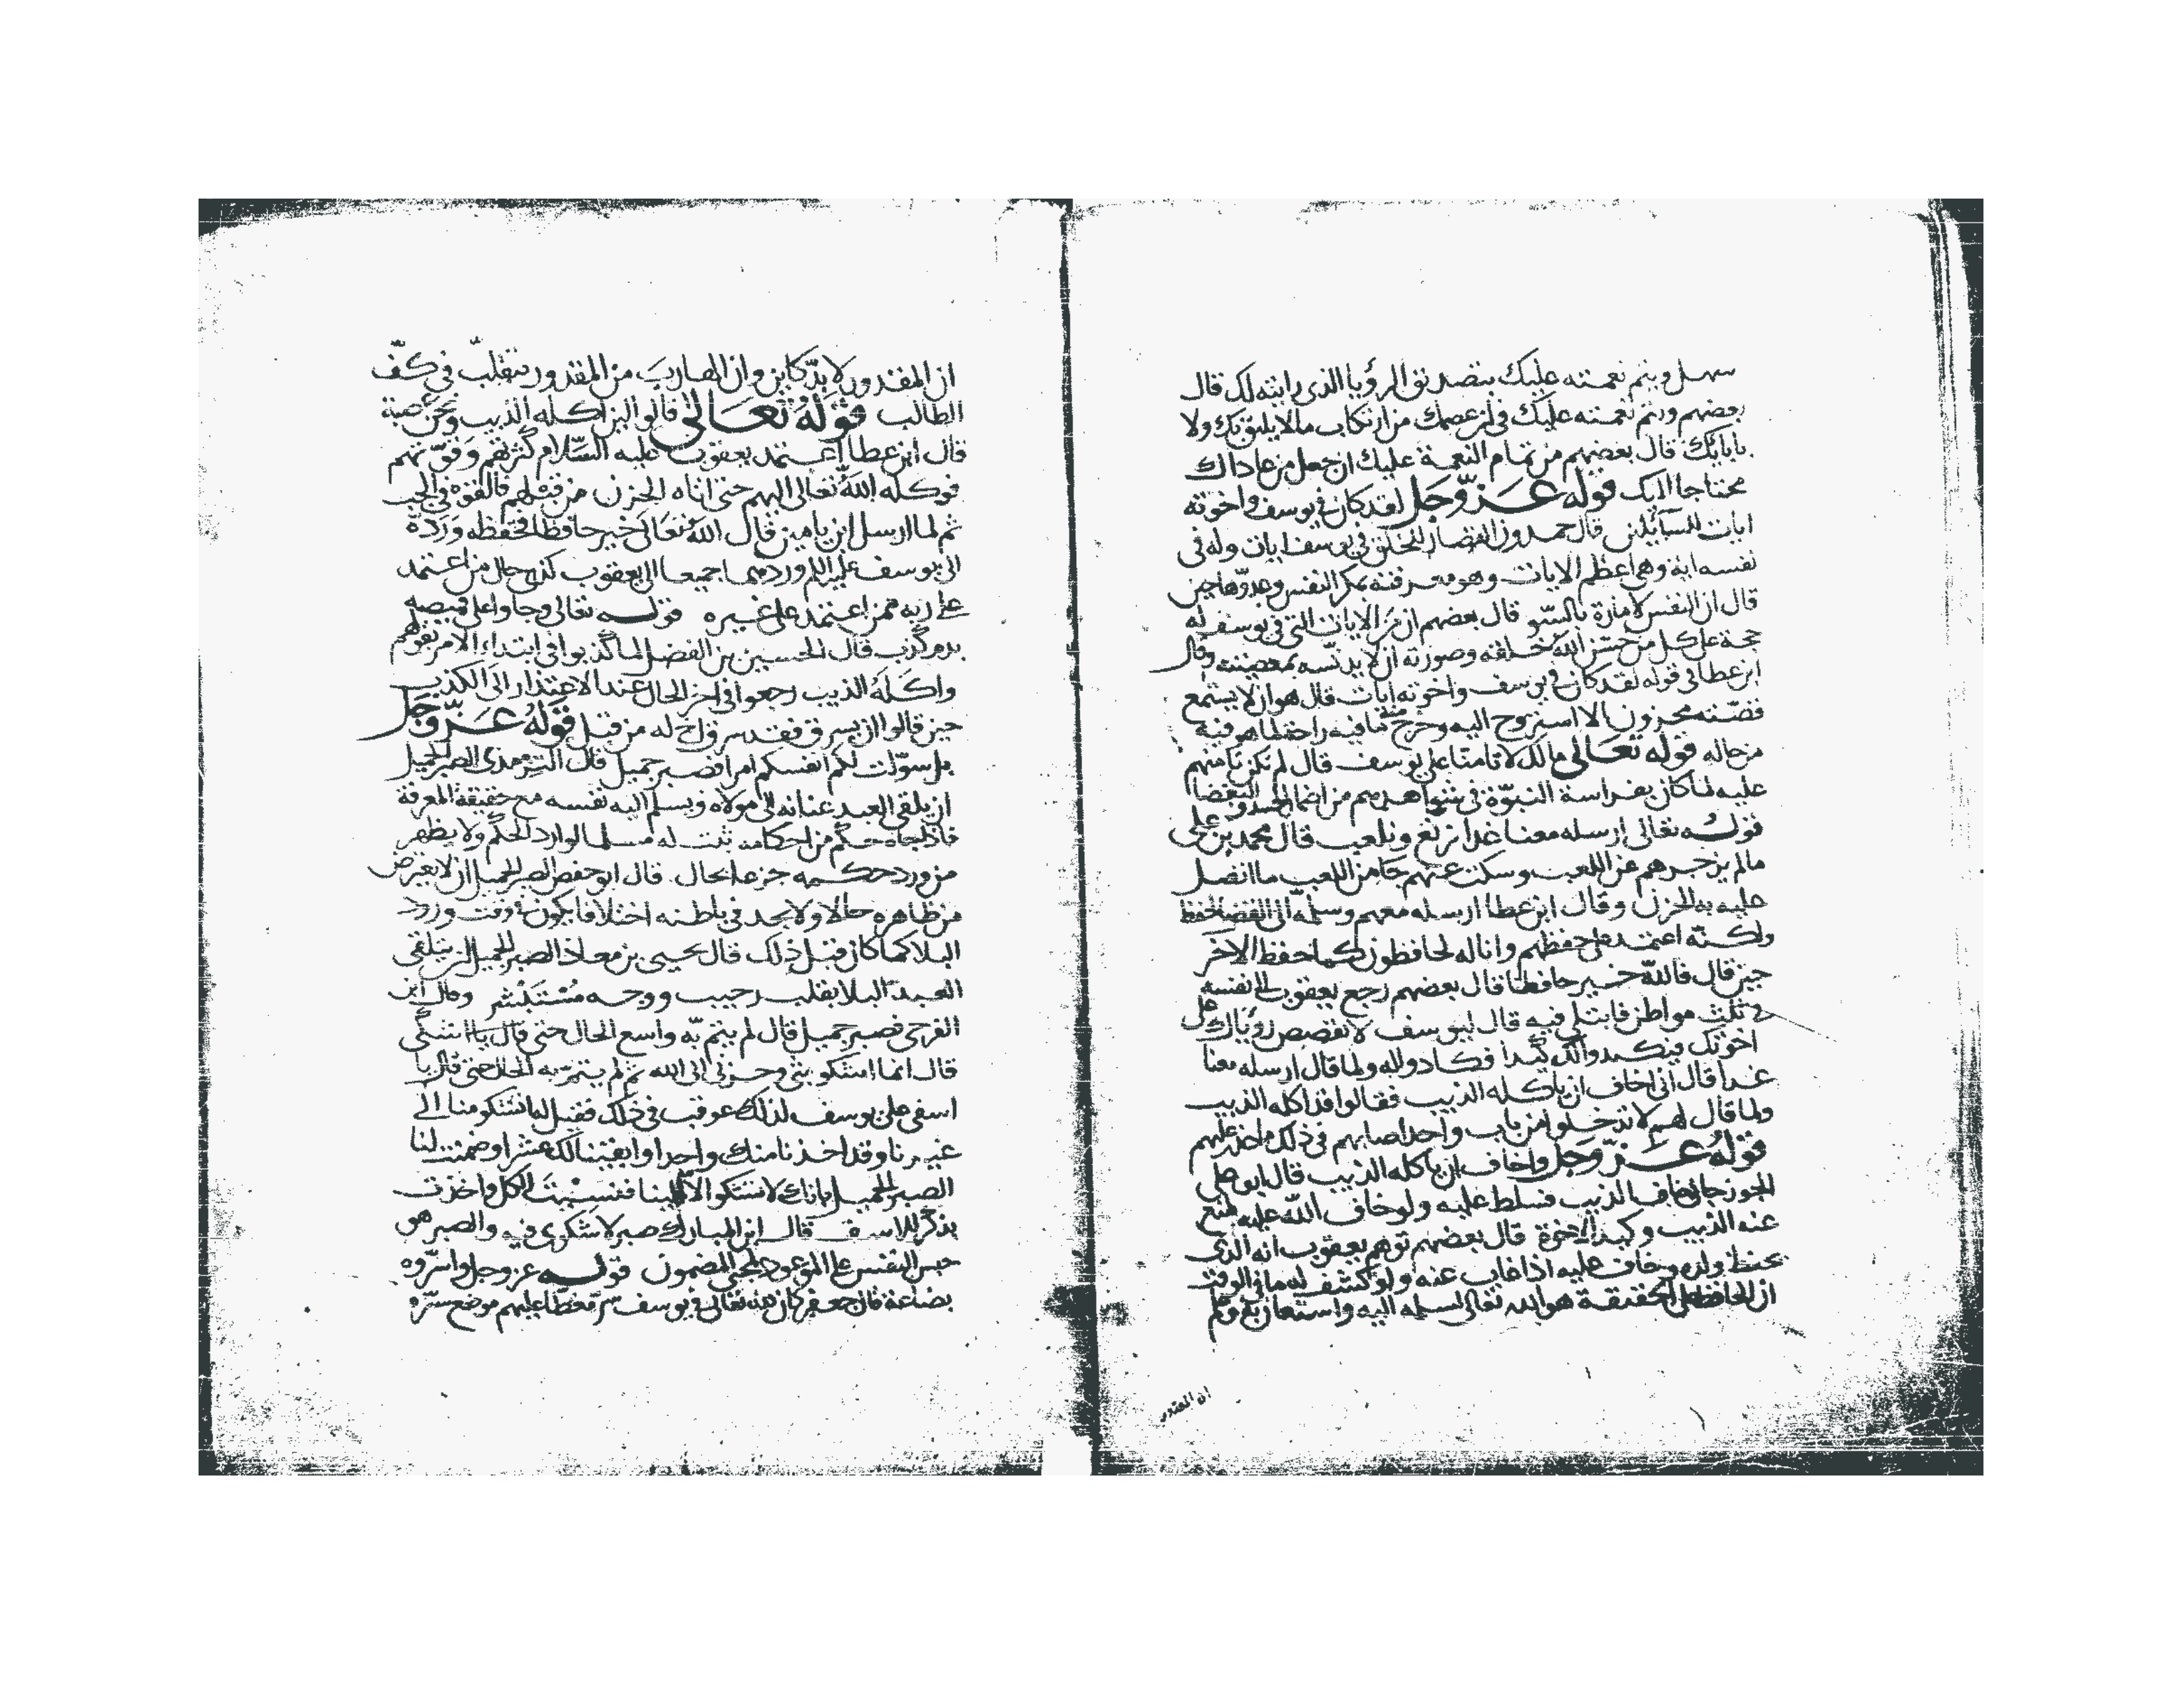 سهل ويتم نعمته عليك بتصديق الرؤيا الذى رايته لك قال
بعضهم ويتم نعمته عليك فى ان عصمك من ارتكاب ما لا يليق بك ولا
بابايك قال بعضهم من تمام النعمة عليك ان جعل من عاداك
محتاجا اليك قوله عز وجل لقد كان فى يوسف واخوته
ايات للسايلين قال حمدون القصار للخلق فى يوسف ايات وله فى
نفسه اية وهى اعظم الايات وهو معرفته بمكر النفس وعدوها حين
قال ان النفس لامارة بالسو قال بعضهم ان من الايات التى فى يوسف له
حجة على كل من حسن الله خلقه وصورته ان لا يدنسه بمعصيته وقال
ابن عطا فى قوله لقد كان فى يوسف واخوته ايات قال هو ان لا يستمع
قصته محزون الا استروح اليه وخرج منه فيه راحة لما هو فيه
من حاله قوله تعالى مالك لا تامنا على يوسف قال لم نكن نامنهم
عليه لما كان بفراسة النبوة فى شواهدهم من اضمار الحسد والبغضا
قوله تعالى ارسله معنا غدا نرتع ونلعب قال محمد بن على
ما لم يزجرهم عن اللعب وسكت عنهم جا من اللعب ما اتصل
عليه به الحزن وقال ابن عطا ارسله معهم وسلمه الى القضا لحفظ
ولكنه اعتمد على حفظهم وانا له لحافظون كما حفظ الاخر
حين قال فالله خير حافظا قال بعضهم رجع يعقوب الى نفسه
فى ثلث مواطن فابتلى فيه قال ليوسف لا تقصص رؤياك على
اخوتك فيكيدوا لك كيدا فكادوا له ولما قال ارسله معنا
غدا قال انى اخاف ان ياكله الذيب فقالوا قد اكله الذيب
ولما قال لهم لا تدخلوا من باب واحد اصابهم فى ذلك ما حذر عليهم
قوله عز وجل واخاف ان ياكله الذيب قال ابو على
الجوزجانى خاف الذيب فسلط عليه ولو خاف الله عليه لمنع
عنه الذيب وكيد الاخوة قال بعضهم توهم يعقوب انه الذى
يحفظ ولده وخاف عليه اذا غاب عنه ولو كشف له ما فى الوقت
ان الحافظ على الحقيقة هو الله تعالى لسلمه اليه واستعان به وعلم
ان المقدور
ان المقدور لا بد كاين وان الهارب من المقدور يتقلب فى كف
الطالب قوله تعالى قالوا لين اكله الذيب ونحن عصبة
قال ابن عطا اعتمد يعقوب عليه السلام كثرتهم وقوتهم
فوكله الله تعالى اليهم حتى اتاه الحزن من قبلهم فالقوه فى الجب
ثم لما ارسل ابن يامين قال الله تعالى خير حافظا فحفظه ورده
الى يوسف عليه السلام وردهما جميعا الى يعقوب كذى حال من اعتمد
على ربه ممن اعتمد على غيره قوله تعالى وجاوا على قميصه
بدم كذب قال الحسين بن الفضل لما كذبوا فى ابتداء الامر بقولهم
واكله الذيب رجعوا فى اخر الحال عند الاعتذار الى الكذب
حين قالوا ان يسرق فقد سرق اخ له من قبل قوله عز وجل
بل سولت لكم انفسكم امرا فصبر جميل قال الترمذى الصبر الجميل
ان يلقى العبد عنانه الى مولاه ويسلم اليه نفسه مع حقيقة المعرفة
فاذا جاه حكم من احكامه ثبت له مسلما لوارد الحكم ولا يظهر
من ورود حكمه جزعا بحال قال ابو حفص الصبر الجميل ان لا يعترض
من ظاهره حالا ولا يجد فى باطنه اختلافا يكون فى وقت ورود
البلا كما كان قبل ذلك قال يحيى بن معاذ الصبر الجميل ان يتلقى
العبد البلا بقلب رحيب ووجه مستبشر وقال ابن
الفرجى فصبر جميل قال لم يتم به واسع الحال حتى قال يا اشتكى
قال انما اشكو بثى وحزنى الى الله ثم لم يتم به الحال حتى قال يا
اسفى على يوسف لذلك عوقب فى ذلك فقيل له اتشكو منا الى
غيرنا وقد اخذنا منك واحدا وابقينا لك عشرا وضمنت لنا
الصبر الجميل فانك لا تشكو الا الينا فنسيت الكل واخذت
بذكر الاسف قال ابن المبارك صبر لا شكوى فيه والصبر هو
حبس النفس على الموعود لمجى المضمون قوله عز وجل واسروه
بضاعة قال جعفر كان لله تعالى فى يوسف سر فغطا عليهم موضع سره